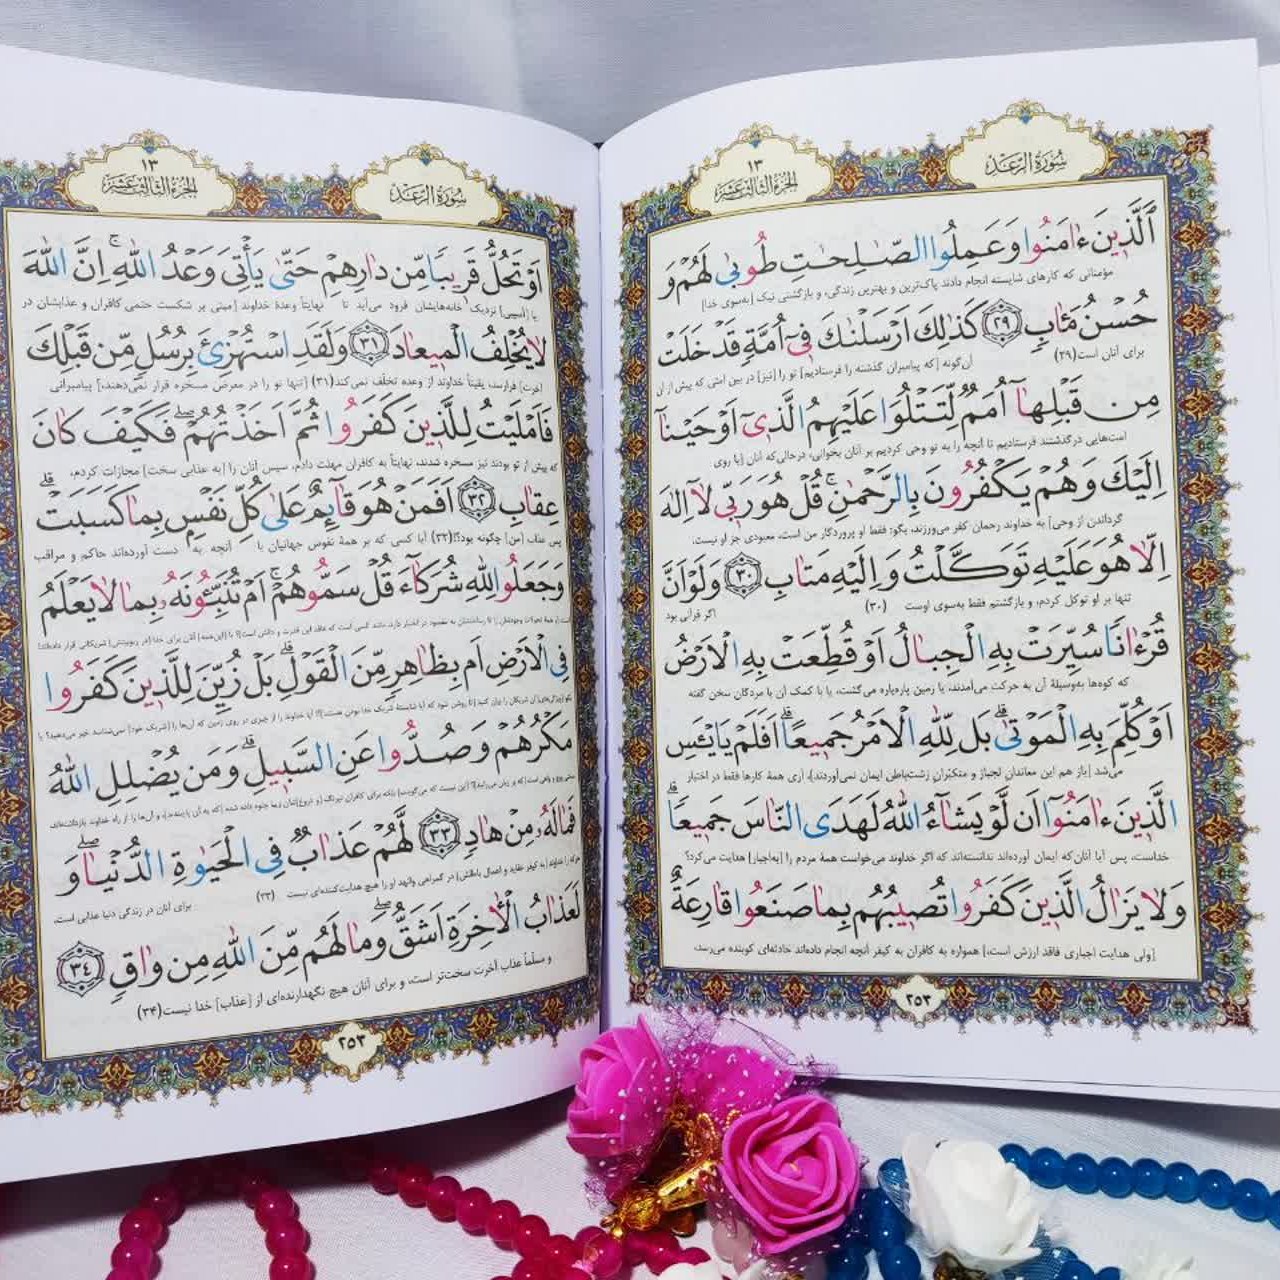 سُورَةُ الرَّعد
١٣
الجزء الثالث عشر
اَلَّذينَ ءامَنُوا وَ عَمِلُوا الصّٰلِحٰتِ طُوبىٰ لَهُم وَ
مؤمنانی که کارهای شایسته انجام دادند پاک‌ترین و بهترین زندگی، و بازگشتی نیک [به‌سوی خدا]
حُسنُ مَـٔابٍ ﴿٢٩﴾ كَذٰلِكَ اَرسَلنٰكَ فى اُمَّةٍ قَد خَلَت
برای آنان است(۲۹) آن‌گونه [که پیامبران گذشته را فرستادیم] تو را [نیز] در بین امتی که پیش از آن
مِن قَبلِها اُمَمٌ لِتَتلُوَا عَلَيهِمُ الَّذى اَوحَينا
امت‌هایی درگذشتند فرستادیم تا آنچه را به تو وحی کردیم بر آنان بخوانی، درحالی‌که آنان [با روی
اِلَيكَ وَ هُم يَكفُرُونَ بِالرَّحمٰنِ ۚ قُل هُوَ رَبّى لا اِلٰهَ
گرداندن از وحی] به خداوند رحمان کفر می‌ورزند، بگو: فقط او پروردگار من است، معبودی جز او نیست.
اِلّا هُوَ عَلَيهِ تَوَكَّلتُ وَ اِلَيهِ مَتابِ ﴿٣٠﴾ وَ لَو اَنَّ
تنها بر او توکل کردم، و بازگشتم فقط به‌سوی اوست (۳۰) اگر قرآنی بود
قُرءانًا سُيِّرَت بِهِ الجِبالُ اَو قُطِّعَت بِهِ الاَرضُ
که کوه‌ها به‌وسیلهٔ آن به حرکت می‌آمدند، یا زمین پاره‌پاره می‌گشت، یا با کمک آن با مردگان سخن گفته
اَو كُلِّمَ بِهِ المَوتىٰ ۗ بَل لِلّٰهِ الاَمرُ جَميعًا ۗ اَفَلَم يَا۟يـَٔسِ
می‌شد [باز هم این معاندان لجباز و متکبّران زشت‌باطن ایمان نمی‌آوردند]، آری همهٔ کارها فقط در اختیار
الَّذينَ ءامَنُوا اَن لَو يَشاءُ اللهُ لَهَدَى النّاسَ جَميعًا ۗ
خداست، پس آیا آنان‌که ایمان آورده‌اند ندانسته‌اند که اگر خداوند می‌خواست همهٔ مردم را [به‌اجبار] هدایت می‌کرد؟
وَ لا يَزالُ الَّذينَ كَفَرُوا تُصيبُهُم بِما صَنَعُوا قارِعَةٌ
[ولی هدایت اجباری فاقد ارزش است،] همواره به کافران به کیفر آنچه انجام داده‌اند حادثه‌ای کوبنده می‌رسد،
٢٥٣
سُورَةُ الرَّعد
١٣
الجزء الثالث عشر
اَو تَحُلُّ قَريبًا مِن دارِهِم حَتّىٰ يَأتِىَ وَعدُ اللهِ ۚ اِنَّ اللهَ
یا [آسیبی] نزدیک خانه‌هایشان فرود می‌آید تا نهایتاً وعدهٔ خداوند [مبنی بر شکست حتمی کافران و عذابشان در
لا يُخلِفُ الميعادَ ﴿٣١﴾ وَ لَقَدِ استُهزِئَ بِرُسُلٍ مِن قَبلِكَ
فرارسد، یقیناً خداوند از وعده تخلّف نمی‌کند(۳۱) [تنها تو را در معرض مسخره قرار نمی‌دهند،] پیامبرانی
فَاَملَيتُ لِلَّذينَ كَفَرُوا ثُمَّ اَخَذتُهُم ۖ فَكَيفَ كانَ
که پیش از تو بودند نیز مسخره شدند، نهایتاً به کافران مهلت دادم، سپس آنان را [به عذابی سخت] مجازات کردم،
عِقابِ ﴿٣٢﴾ اَفَمَن هُوَ قائِمٌ عَلىٰ كُلِّ نَفسٍ بِما كَسَبَت ۗ
پس عذاب [من] چگونه بود؟!(۳۲) آیا کسی که بر همهٔ نفوس جهانیان با آنچه به دست آورده‌اند حاکم و مراقب
وَ جَعَلُوا لِلّٰهِ شُرَكاءَ قُل سَمُّوهُم ۚ اَم تُنَبِّـُٔونَهُ بِما لا يَعلَمُ
فِى الاَرضِ اَم بِظاهِرٍ مِنَ القَولِ ۗ بَل زُيِّنَ لِلَّذينَ كَفَرُوا
مَكرُهُم وَ صُدُّوا عَنِ السَّبيلِ ۗ وَ مَن يُضلِلِ اللهُ
فَما لَهُ مِن هادٍ ﴿٣٣﴾ لَهُم عَذابٌ فِى الحَيٰوةِ الدُّنيا ۖ وَ
در گمراهی وانهد او را هیچ هدایت‌کننده‌ای نیست (۳۳) برای آنان در زندگی دنیا عذابی است،
لَعَذابُ الأخِرَةِ اَشَقُّ ۖ وَ ما لَهُم مِنَ اللهِ مِن واقٍ ﴿٣٤﴾
و مسلّماً عذاب آخرت سخت‌تر است، و برای آنان هیچ نگهدارنده‌ای از [عذاب] خدا نیست(۳۴)
٢٥٣